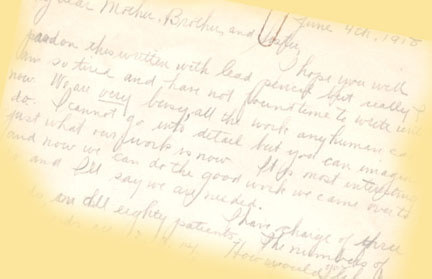 My dear Mother, Brother, and Sister, June 4th, 1918
I hope you will
pardon this written with lead pencil but really I
am so tired and have not found time to write until
now. We are very busy, all the work any human can
do. I cannot go into detail but you can imagine
just what our work is now. It is most interesting
and now we can do the good work we came over to
do, and I'll say we are needed.
I have charge of three
in all eighty patients. The numbers of
How would you